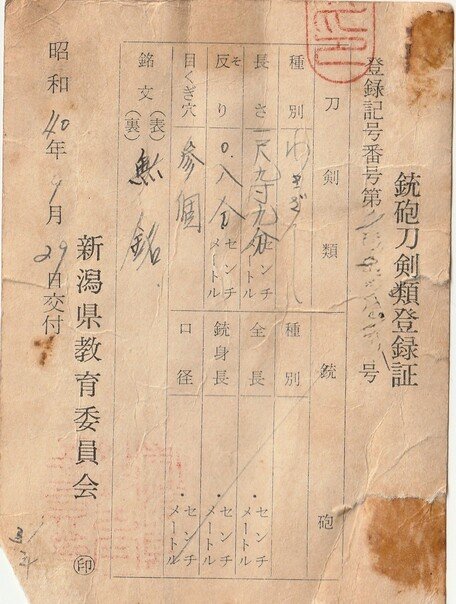 銃砲刀剣類登録証
登録記号番号第 号
刀剣類 銃砲
種別 わきざし 種別
長さ 一尺九寸九分 センチメートル 全長 ・センチメートル
反り そ 〇.八分 センチメートル 銃身長 ・センチメートル
目くぎ穴 参個 口径 ・センチメートル
銘文 (表) 無銘
(裏)
昭和40年9月29日交付
新潟県教育委員会 印